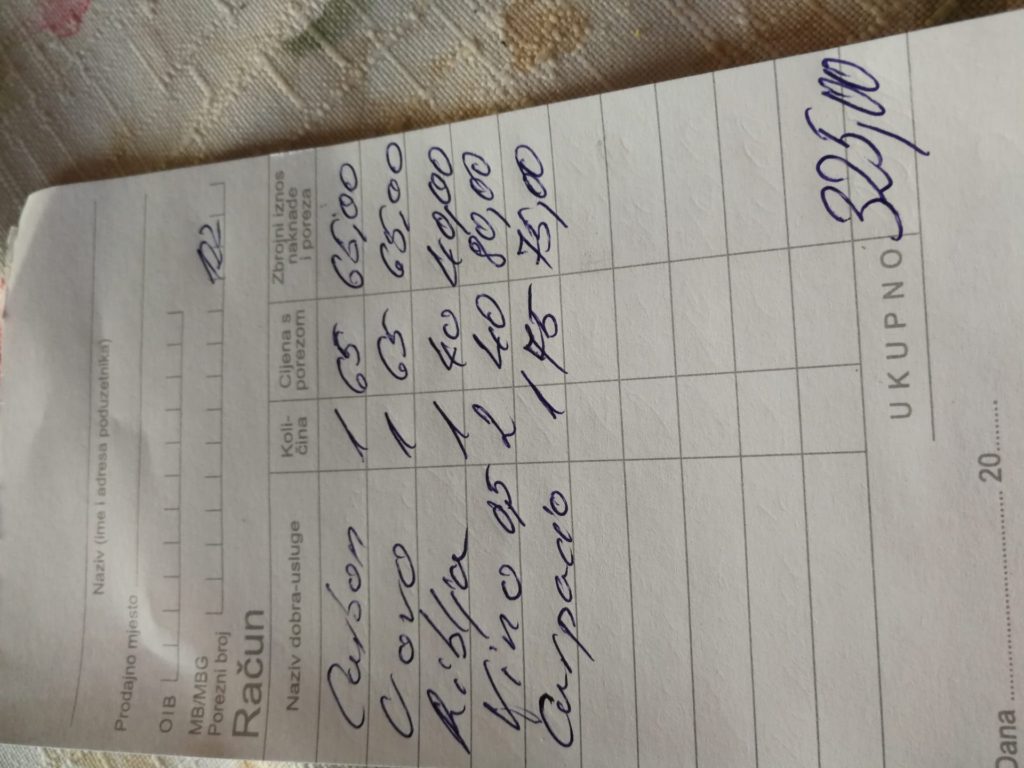 Naziv (ime i adresa poduzetnika)
Prodajno mjesto
OIB
MB/MBG
Porezni broj
Račun
Naziv dobra-usluge Koli-čina Cijena s porezom Zbrojni iznos naknade i poreza
Carbon 1 65 65,00
Crovo 1 65 65,00
Riblja 1 40 40,00
Vino 0,5 2 40 80,00
Carpacio 1 75 75,00
UKUPNO 325,00
Dana 20